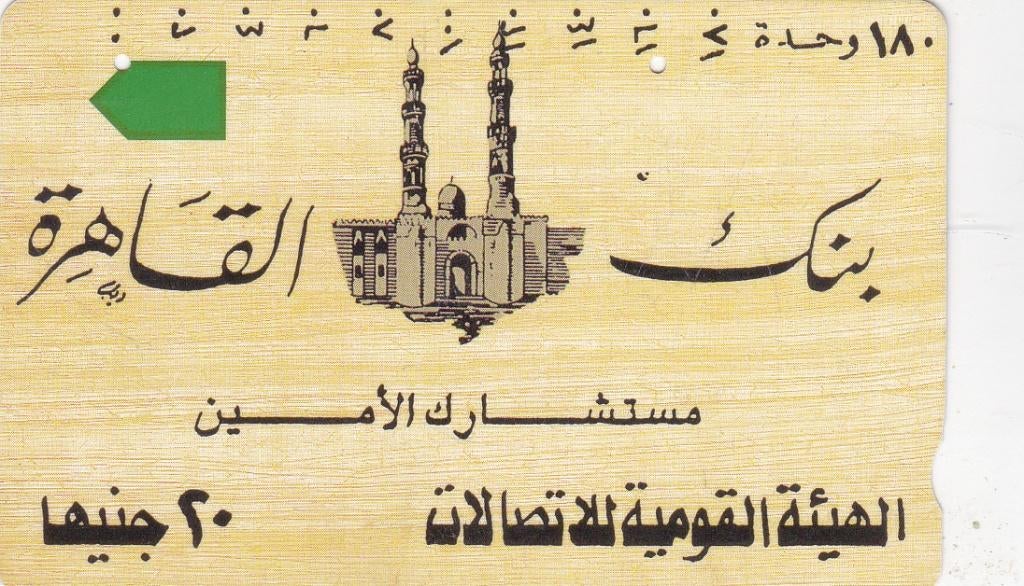 ١٨٠ وحدة ١٨٠ ١٦٠ ١٤٠ ١٢٠ ١٠٠ ٨٠ ٦٠ ٤٠ ٢٠
بنك القاهرة
مستشارك الأمين
الهيئة القومية للاتصالات ٢٠ جنيها